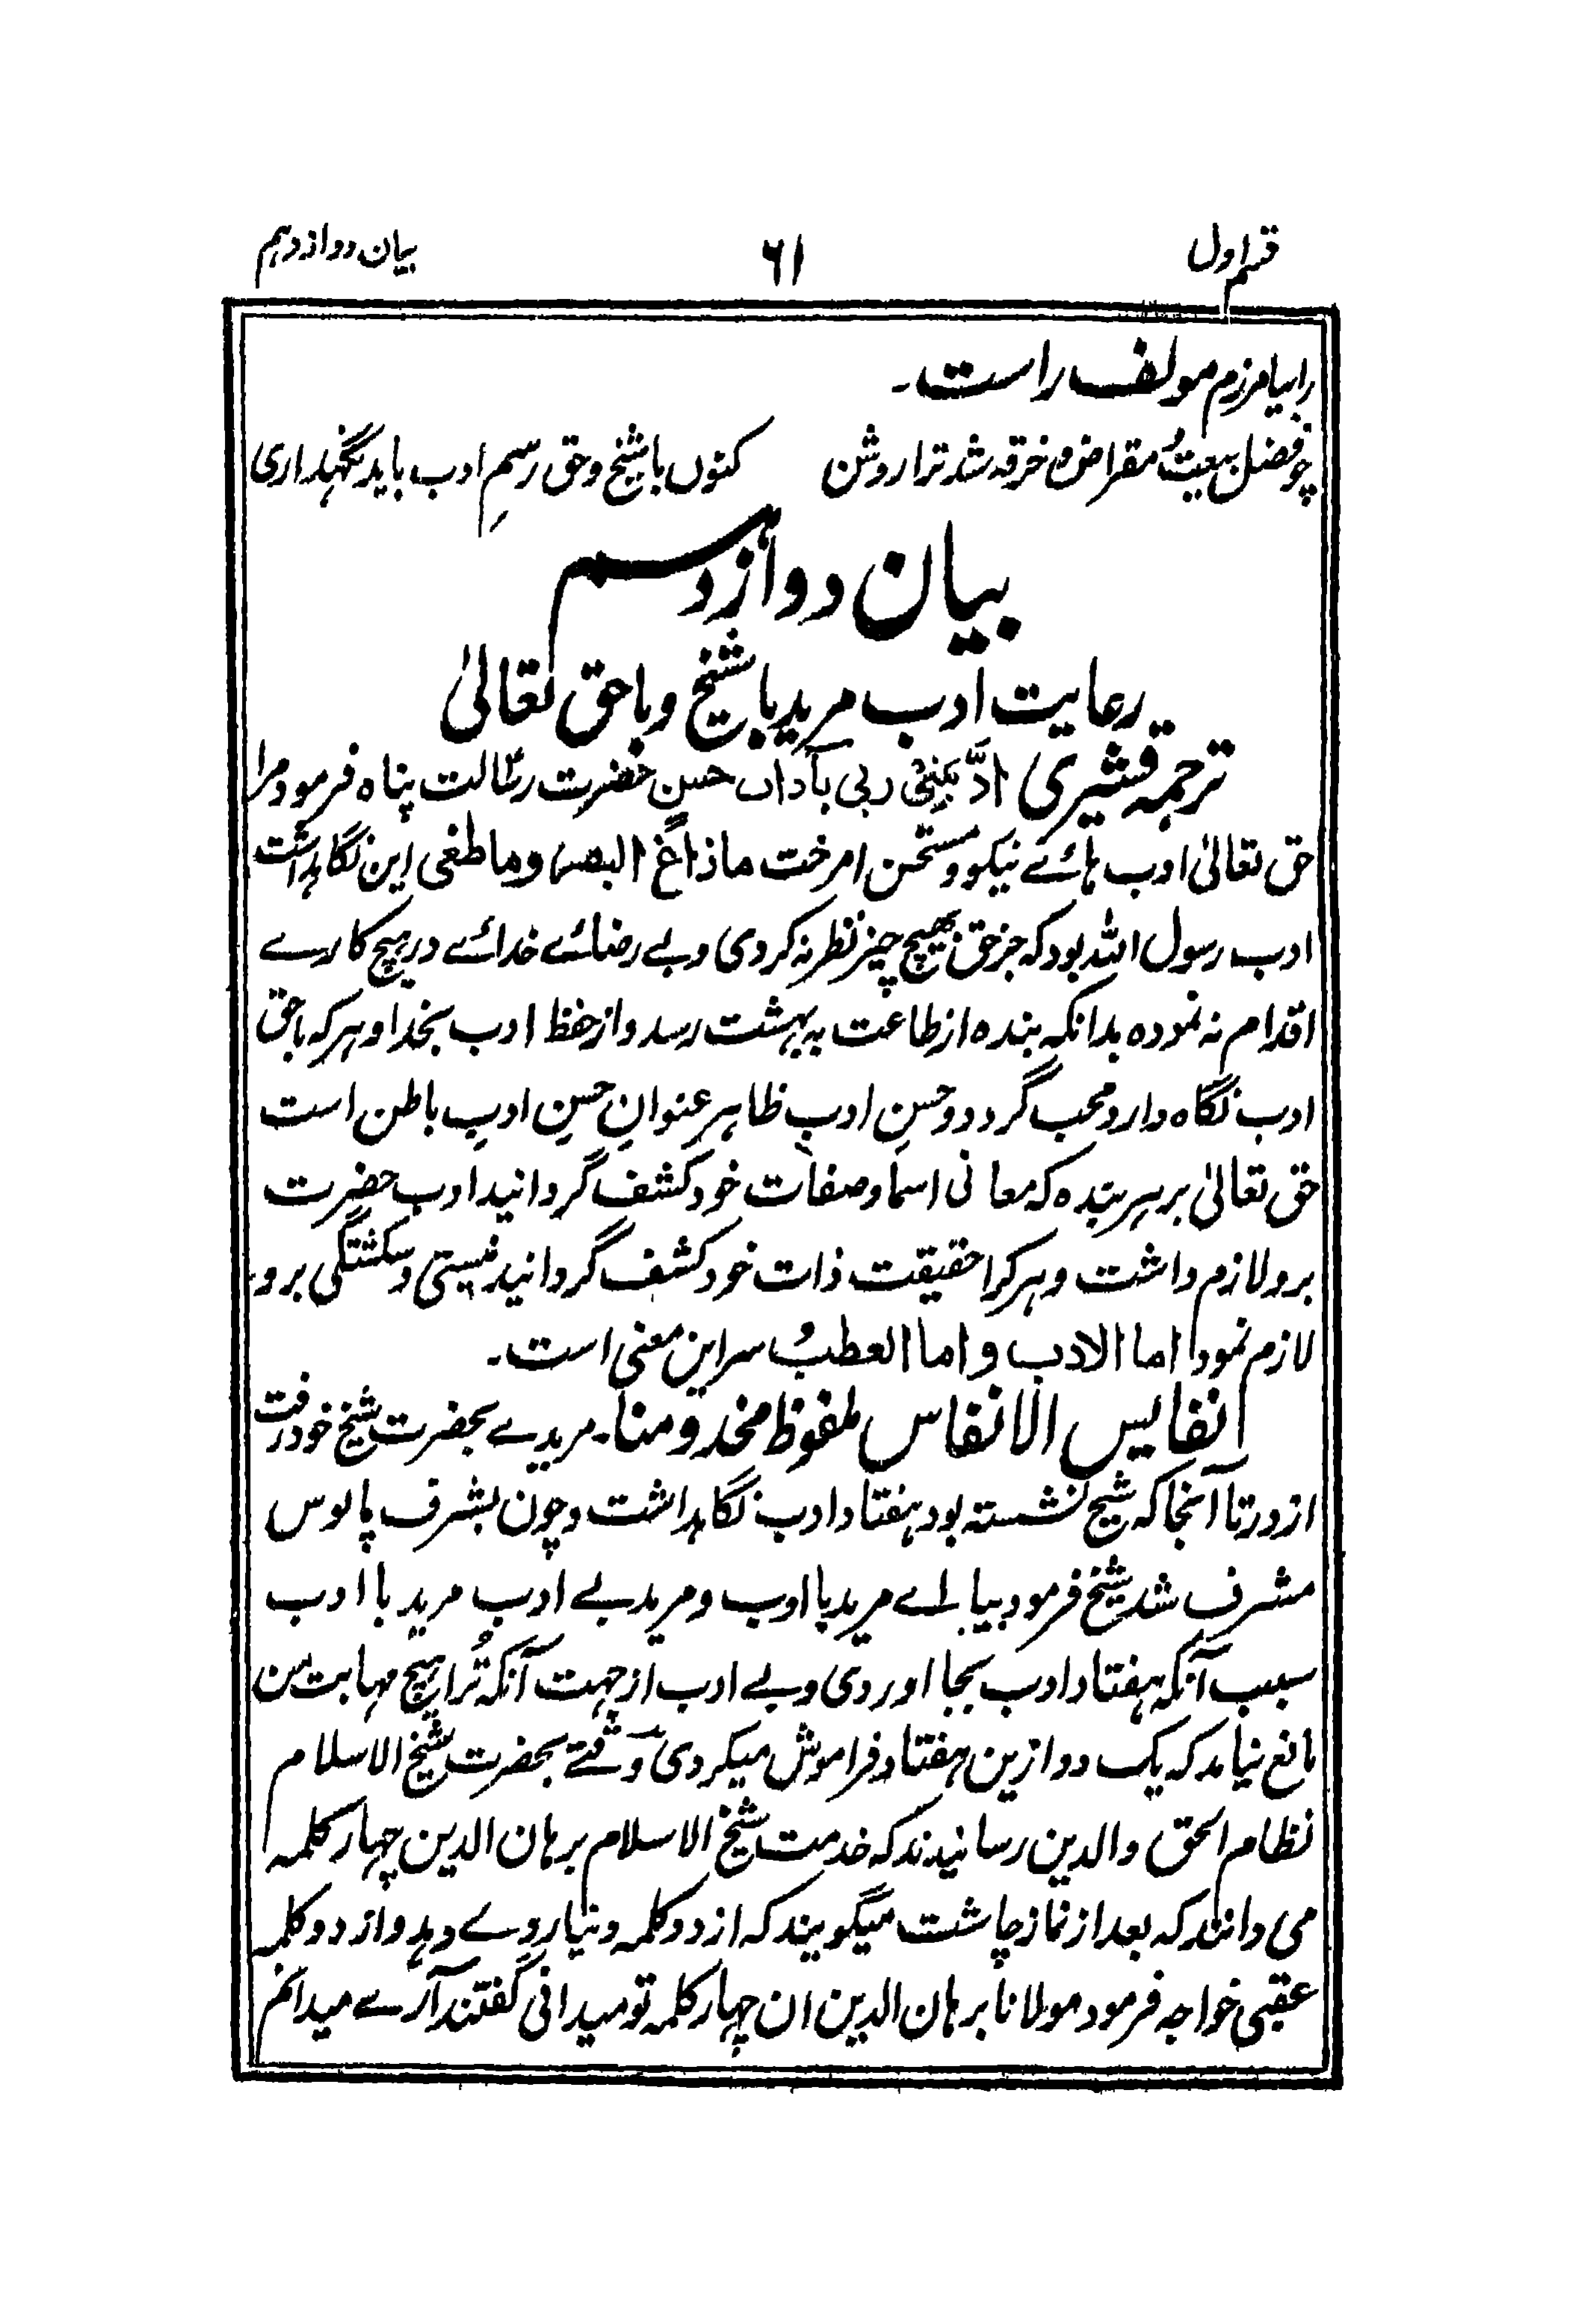 قسم اول ٦١ بیان دوازدہم
را بیامرزم مولف راست۔
چو فضل بیعتُ مقراض و خرقہ شد ترا روشن کنوں با شیخ و حق رسمِ ادب باید نگہداری
بیان دوازدہم
رعایت ادب مرید با شیخ و با حق تعالیٰ
ترجمہ قشیری ادَّبَنِیْ ربی بآداب حسنٍ حضرت رسالت پناہ فرمود مرا
حق تعالیٰ ادب ہائے نیکو و مستحسن امرخت ماذاغ البصر وماطغی این نگاہداشت
ادب رسول اللہ بود کہ جز حق بہیچ چیز نظر نہ کردی و بے رضائے خدائے در ہیچ کارے
اقدام نہ نمودہ بدانکہ بندہ از طاعت بہ بہشت رسد و از حفظ ادب بخدا و ہر کہ با حق
ادب نگاہ دارد محب گردد و حسنِ ادبِ ظاہر عنوانِ حسنِ ادبِ باطن است
حق تعالیٰ بر سرِ بندہ کہ معانی اسما و صفات خود کشف گردانید ادب حضرت
برو لازم داشت و ہر کرا حقیقت ذات خود کشف گردانید نیستی و شکستگی برو
لازم نمود اما الادب و اما العطبُ سر این معنی است۔
انفایس الانفاس ملفوظ مخدومنا۔ مریدے بحضرت شیخ خود رفت
از در تا آنجا کہ شیخ نشستہ بود ہفتاد ادب نگاہداشت و چون بشرف پابوس
مشرف شد شیخ فرمود بیا اے مرید با ادب و مرید بے ادب مرید با ادب
سبب آنکہ ہفتاد ادب بجا اوردی و بے ادب از جہت آنکہ تُرا ہیچ مہابت من
مانع نیامد کہ یک دو ازین ہفتاد فراموش میکردی وقتے بحضرت شیخ الاسلام
نظام الحق والدین رسانیدند کہ خدمت شیخ الاسلام برہان الدین چہار کلمہ
می دانند کہ بعد از نماز چاشت میگویند کہ از دو کلمہ دنیا روے دہد و از دو کلمہ
عقبی خواجہ فرمود مولانا برہان الدین ان چہار کلمہ تو میدانی گفتند آرے میدانم